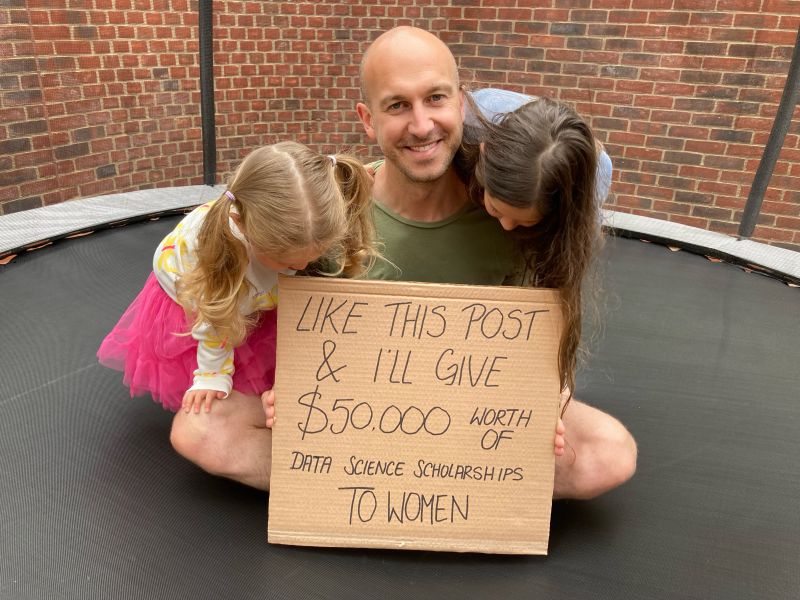 LIKE THIS POST
& I'LL GIVE
$50.000 WORTH OF
DATA SCIENCE SCHOLARSHIPS
TO WOMEN